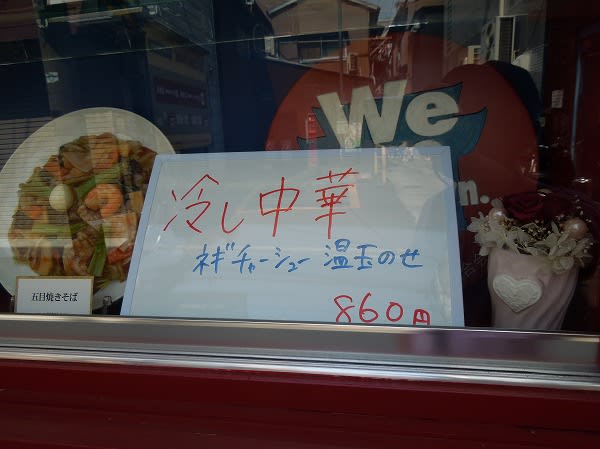 We
冷し中華
ネギチャーシュー 温玉のせ
860円
五目焼きそば